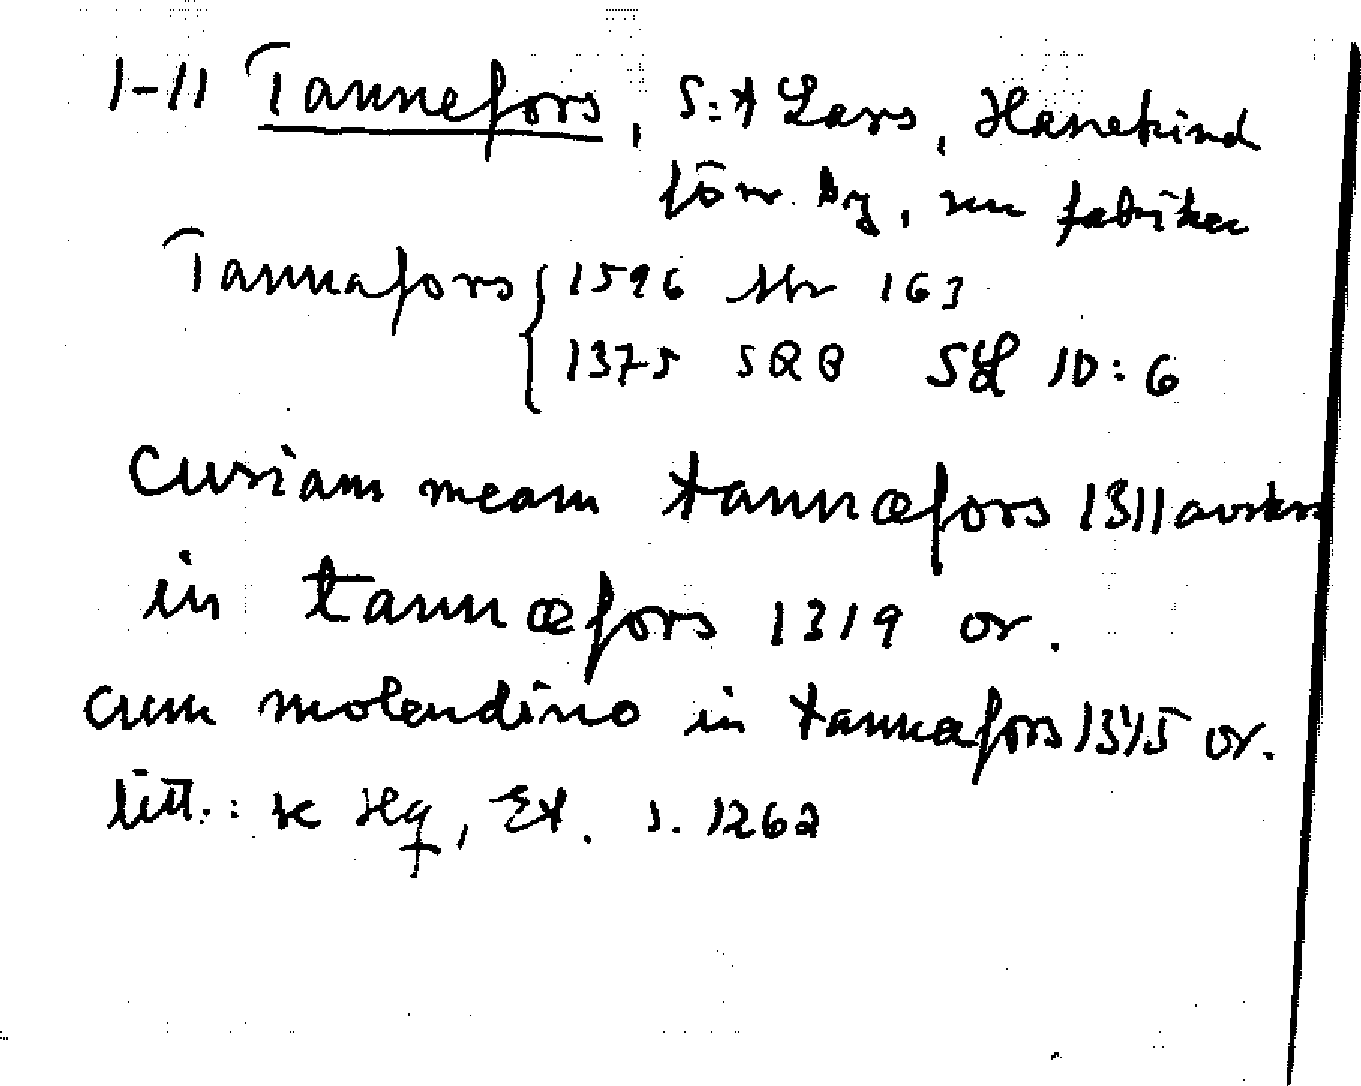 1-11 Tannefors, S:t Lars, Hanekind
förr by, nu fabriker
Tannafors { 1596 163
1375 SRB SH 10:6
Curiam meam tannæfors 1311 avskr
in tannæfors 1319 or.
cum molendino in tannafors 1345 or.
litt.: k Hq, Et. s. 1262